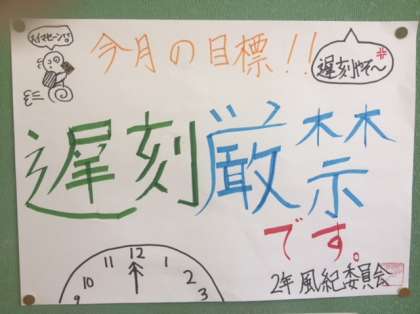 スイマセーン!!
今月の目標!!
遅刻やぞ〜
遅刻厳禁
です。
2年 風紀委員会
9 10 11 12 1 2 3